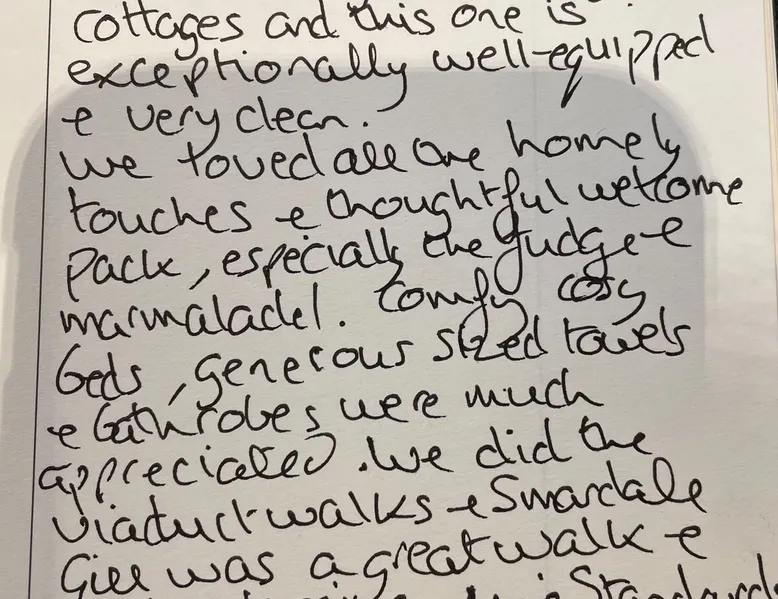 cottages and this one is
exceptionally well-equipped
& very clean.
We loved all the homely
touches & thoughtful welcome
pack, especially the fudge &
marmalade!. Comfy cosy
beds, generous sized towels
& bathrobes were much
appreciated. We did the
viaduct walks & Smardale
Gill was a great walk &
Standards